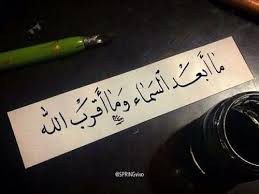 ما أبعد السماء وما أقرب الله
@SPRINGvixo